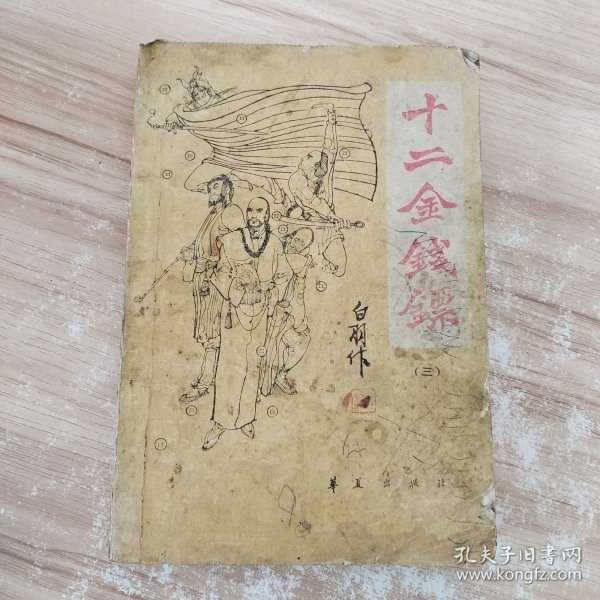 十二金钱镖
(三)
白羽作
华夏出版社
孔夫子旧书网
www.kongfz.com